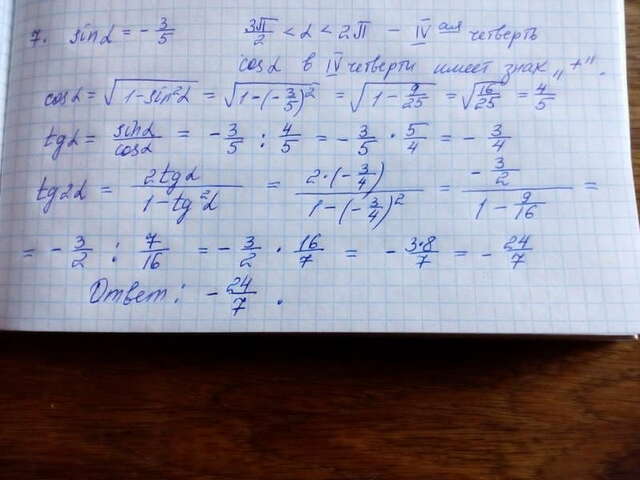 7. sin α = - 3/5 3π/2 < α < 2π - IV ая четверть
cos α в IV четверти имеет знак „+".
cos α = √(1 - sin²α) = √(1 - (-3/5)²) = √(1 - 9/25) = √(16/25) = 4/5
tg α = sin α / cos α = - 3/5 : 4/5 = - 3/5 · 5/4 = - 3/4
tg 2α = 2 tg α / (1 - tg²α) = 2·(-3/4) / (1 - (-3/4)²) = (-3/2) / (1 - 9/16) =
= - 3/2 : 7/16 = - 3/2 · 16/7 = - 3·8/7 = - 24/7
Ответ: - 24/7 .